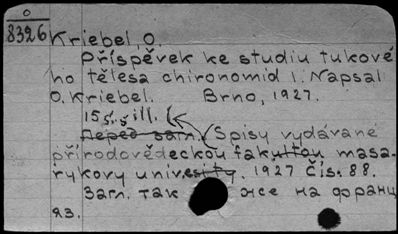 0
8326
Kriebel, O.
Příspěvek ke studiu tukové
ho tělesa chironomid 1. Napsal
O. Kriebel. Brno, 1927.
15 s. s ill.
Перед загл. Spisy vydávané
přírodovědeckou fakultou masa-
rykovy university. 1927 Čís. 88.
Загл. так же на франц
яз.